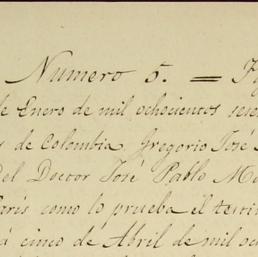 Numero 5. =
de Enero de mil ochocientos
s de Colombia, Gregorio José
Del Doctor José Pablo
Paris como lo prueba el
á cinco de Abril de mil